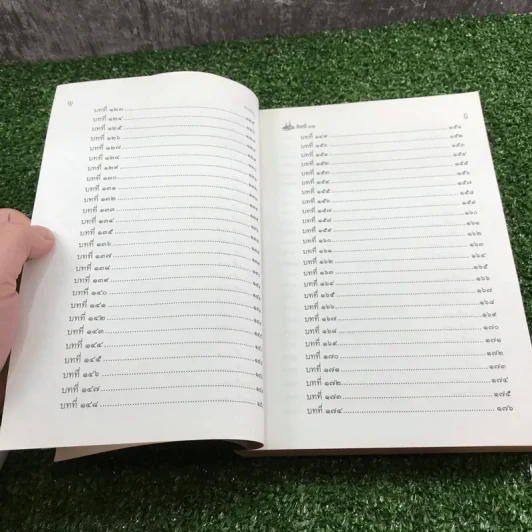 บทที่ ๑๒๓
บทที่ ๑๒๔
บทที่ ๑๒๕
บทที่ ๑๒๖
บทที่ ๑๒๗
บทที่ ๑๒๘
บทที่ ๑๒๙
บทที่ ๑๓๐
บทที่ ๑๓๑
บทที่ ๑๓๒
บทที่ ๑๓๓
บทที่ ๑๓๔
บทที่ ๑๓๕
บทที่ ๑๓๖
บทที่ ๑๓๗
บทที่ ๑๓๘
บทที่ ๑๓๙
บทที่ ๑๔๐
บทที่ ๑๔๑
บทที่ ๑๔๒
บทที่ ๑๔๓
บทที่ ๑๔๔
บทที่ ๑๔๕
บทที่ ๑๔๖
บทที่ ๑๔๗
บทที่ ๑๔๘
บทที่ ๑๔๙ ๑๕๑
บทที่ ๑๕๐ ๑๕๒
บทที่ ๑๕๑ ๑๕๓
บทที่ ๑๕๒ ๑๕๔
บทที่ ๑๕๓ ๑๕๕
บทที่ ๑๕๔ ๑๕๖
บทที่ ๑๕๕ ๑๕๗
บทที่ ๑๕๖ ๑๕๘
บทที่ ๑๕๗ ๑๕๙
บทที่ ๑๕๘ ๑๖๐
บทที่ ๑๕๙ ๑๖๑
บทที่ ๑๖๐ ๑๖๒
บทที่ ๑๖๑ ๑๖๓
บทที่ ๑๖๒ ๑๖๔
บทที่ ๑๖๓ ๑๖๕
บทที่ ๑๖๔ ๑๖๖
บทที่ ๑๖๕ ๑๖๗
บทที่ ๑๖๖ ๑๖๘
บทที่ ๑๖๗ ๑๖๙
บทที่ ๑๖๘ ๑๗๐
บทที่ ๑๖๙ ๑๗๑
บทที่ ๑๗๐ ๑๗๒
บทที่ ๑๗๑ ๑๗๓
บทที่ ๑๗๒ ๑๗๔
บทที่ ๑๗๓ ๑๗๕
บทที่ ๑๗๔ ๑๗๖